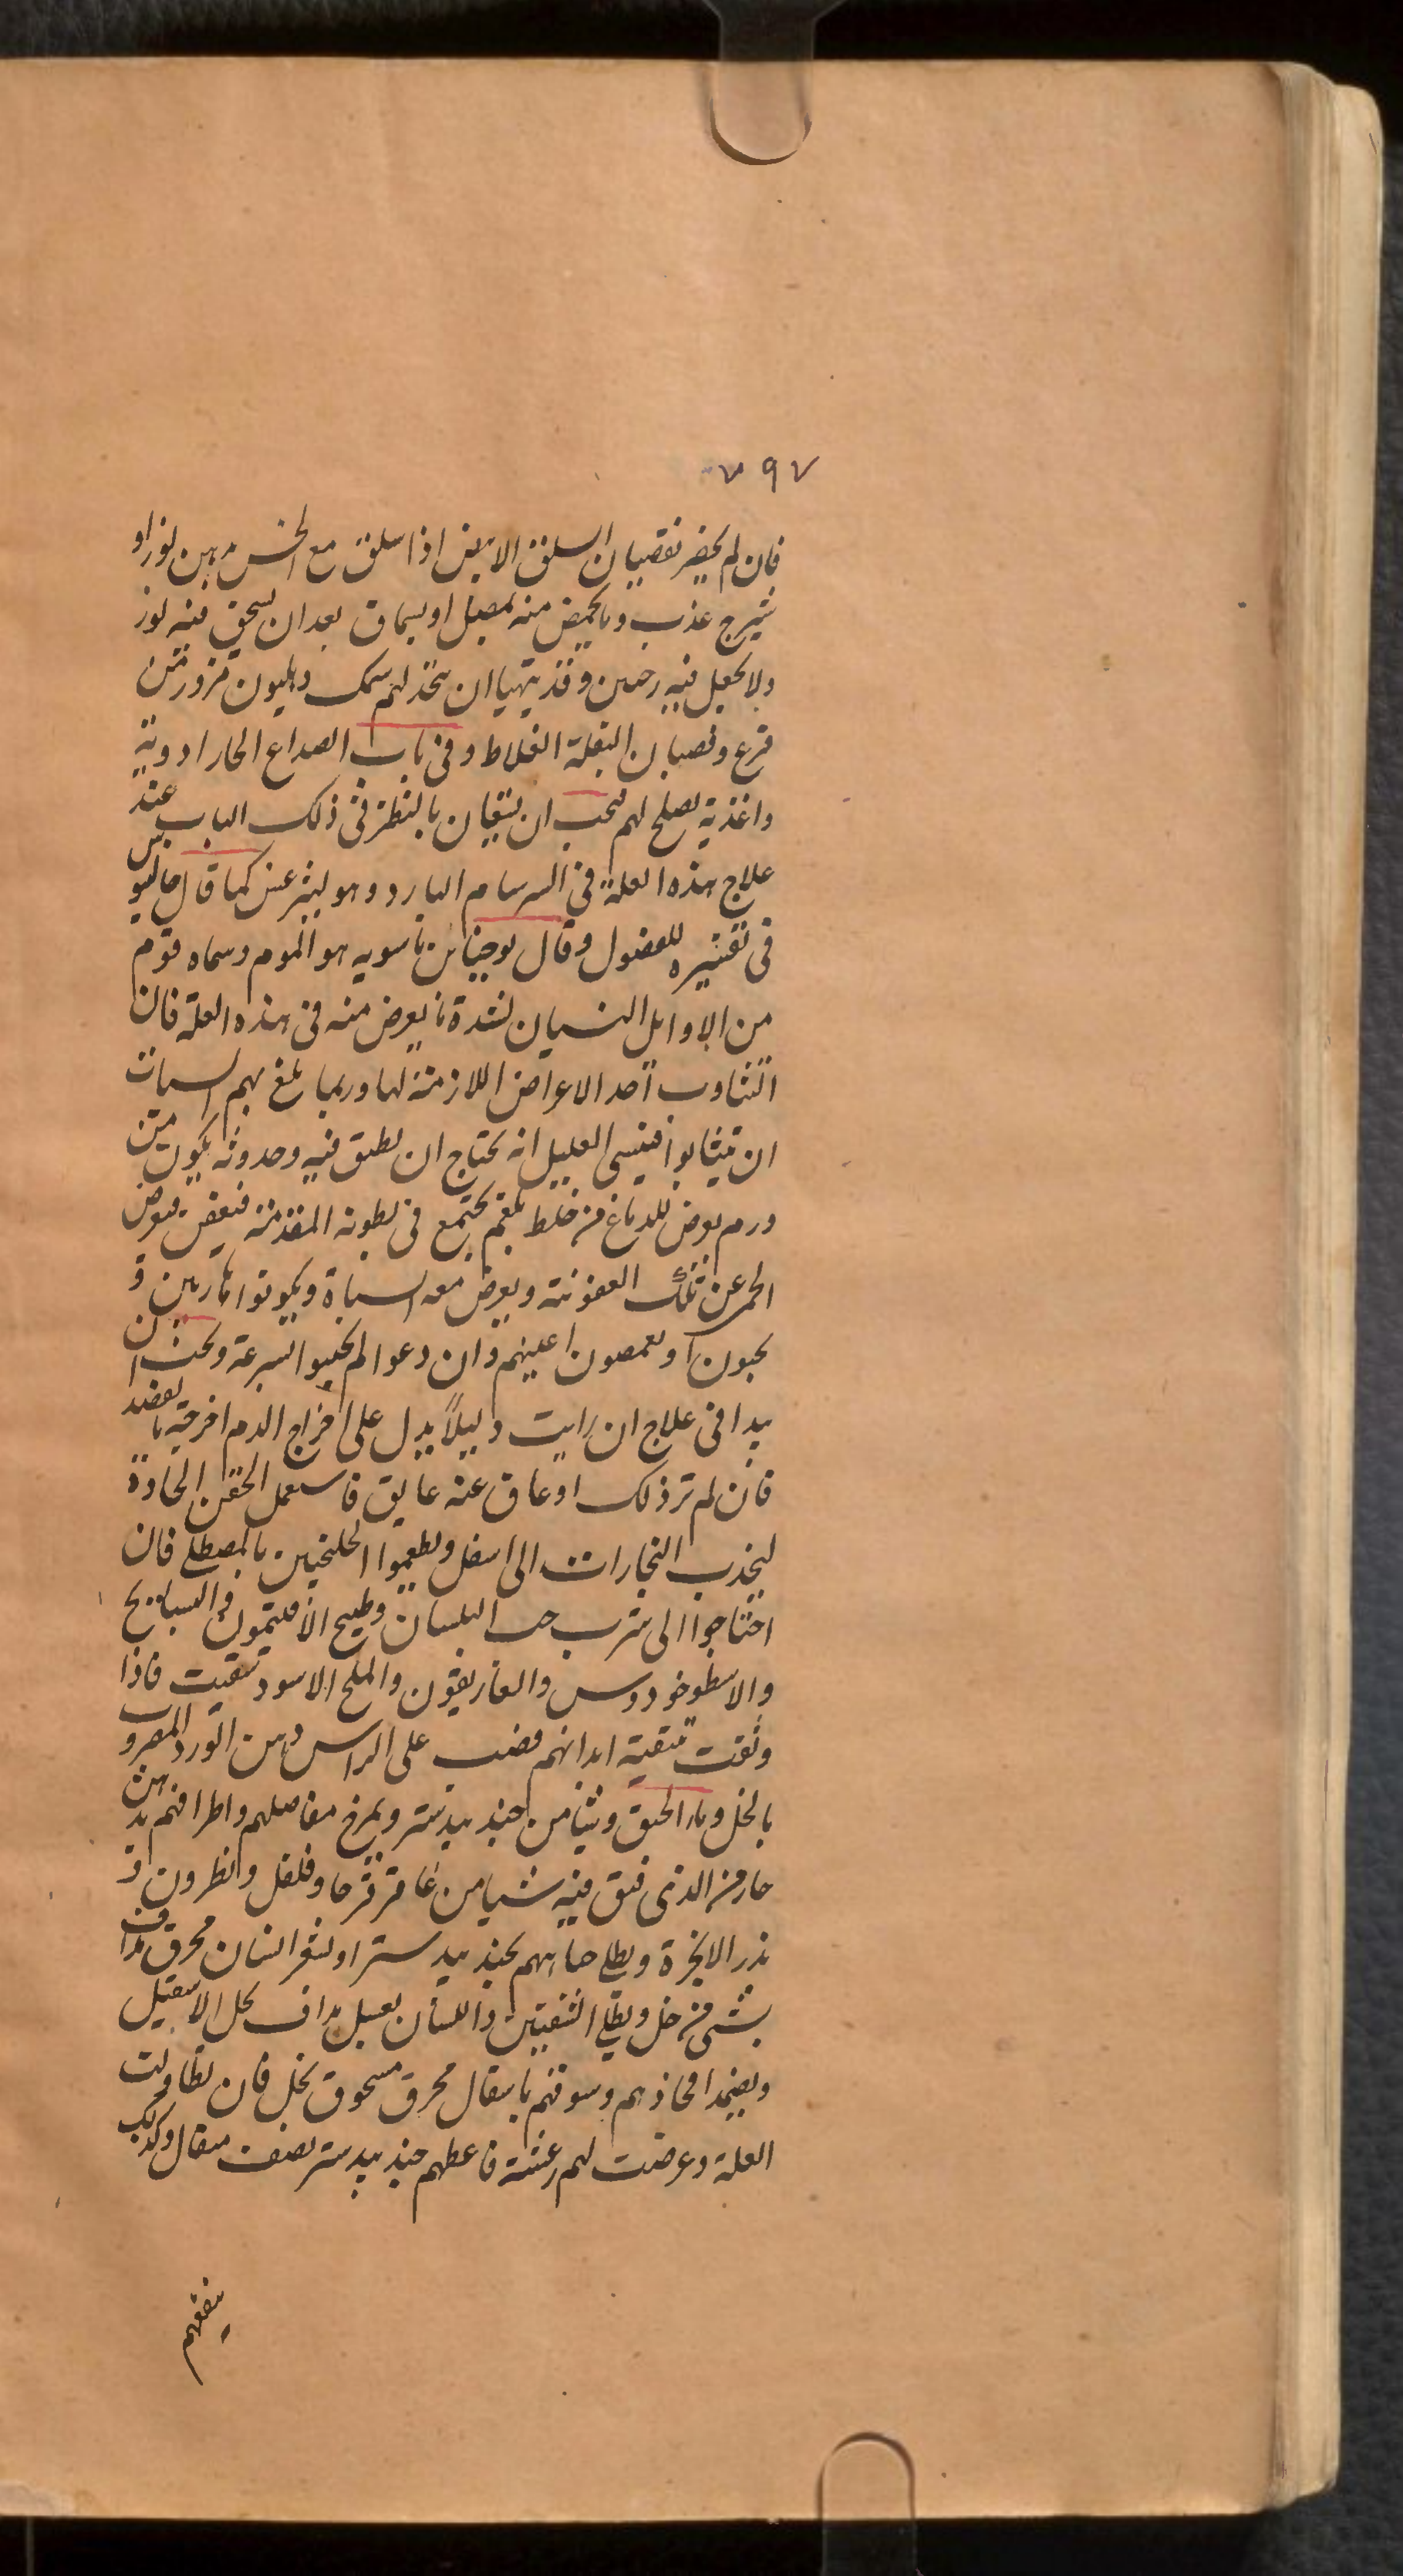 ٧٩٧
فان لم يحضر فقضبان السلق الابيض اذا سلق مع الخس بدهن لوز او
شيرج عذب وما يحمض منه بمصل او بسماق بعد ان يسحق فيه لوز
ولا يجعل فيه وقد يتهيا ان يتخذ لهم سمك وهليون مزورتين
قرع وقضبان البقلة الغلاظ وفى باب الصداع الحار ادوية
واغذية يصلح لهم فيجب ان يستعان بالنظر فى ذلك الباب عند
علاج هذه العلة فى السرسام البارد وهو ليثرغس كما قال جالينوس
فى تفسيره للفصول وقال يوحنا بن ماسويه هو الموم وسماه قوم
من الاوايل النسيان لشدة ما يعرض منه فى هذه العلة فان
التثاوب احد الاعراض اللازمة لها وربما بلغ بهم السبات
ان يتثابوا فينسى العليل انه يحتاج ان يطبق فيه وحدوثه يكون من
ورم يعرض للدماغ من خلط بلغم يجتمع فى بطونه المقدمة فيعفن فيعرض
الحمى عن تلك العفونة ويعرض معه السباة ويكونوا هاربين و
يحبون ويغمضون اعينهم وان دعوا لم يجيبوا بسرعة ويجب ان
يبدا فى علاج ان رايت دليلاً يدل على اخراج الدم اخرجته بالفصد
فان لم تر ذلك او عاق عنه عايق فاستعمل الحقن الحادة
ليجذب البخارات الى اسفل ويطعموا الجلنجبين بالمصطكى فان
احتاجوا الى شرب حب البلسان وطبيخ الافيتمون والبسبايج
والاسطوخودوس والغاريقون والملح الاسود سقيت فاذا
وثقت بتنقية ابدانهم فضب على الراس دهن الورد المضروب
بالخل وماء الحبق وشيئا من جندبيدستر ويمرخ مفاصلهم واطرافهم بدهن
حار من الذى فتق فيه شيا من عاقرقرحا وفلفل ونطرون و
بذر الانجرة ويطلى بجندبيدستر او بشعر انسان محرق مداف
بشى من خل ويطلى الشفتين واللسان بعسل مداف بخل الاسقيل
ويضمد افخاذهم وسوقهم باسقال محرق مسحوق بخل فان تطاولت
العلة وعرضت لهم رعشة فاعطهم جندبيدستر نصف مثقال وكذلك
ينفعهم